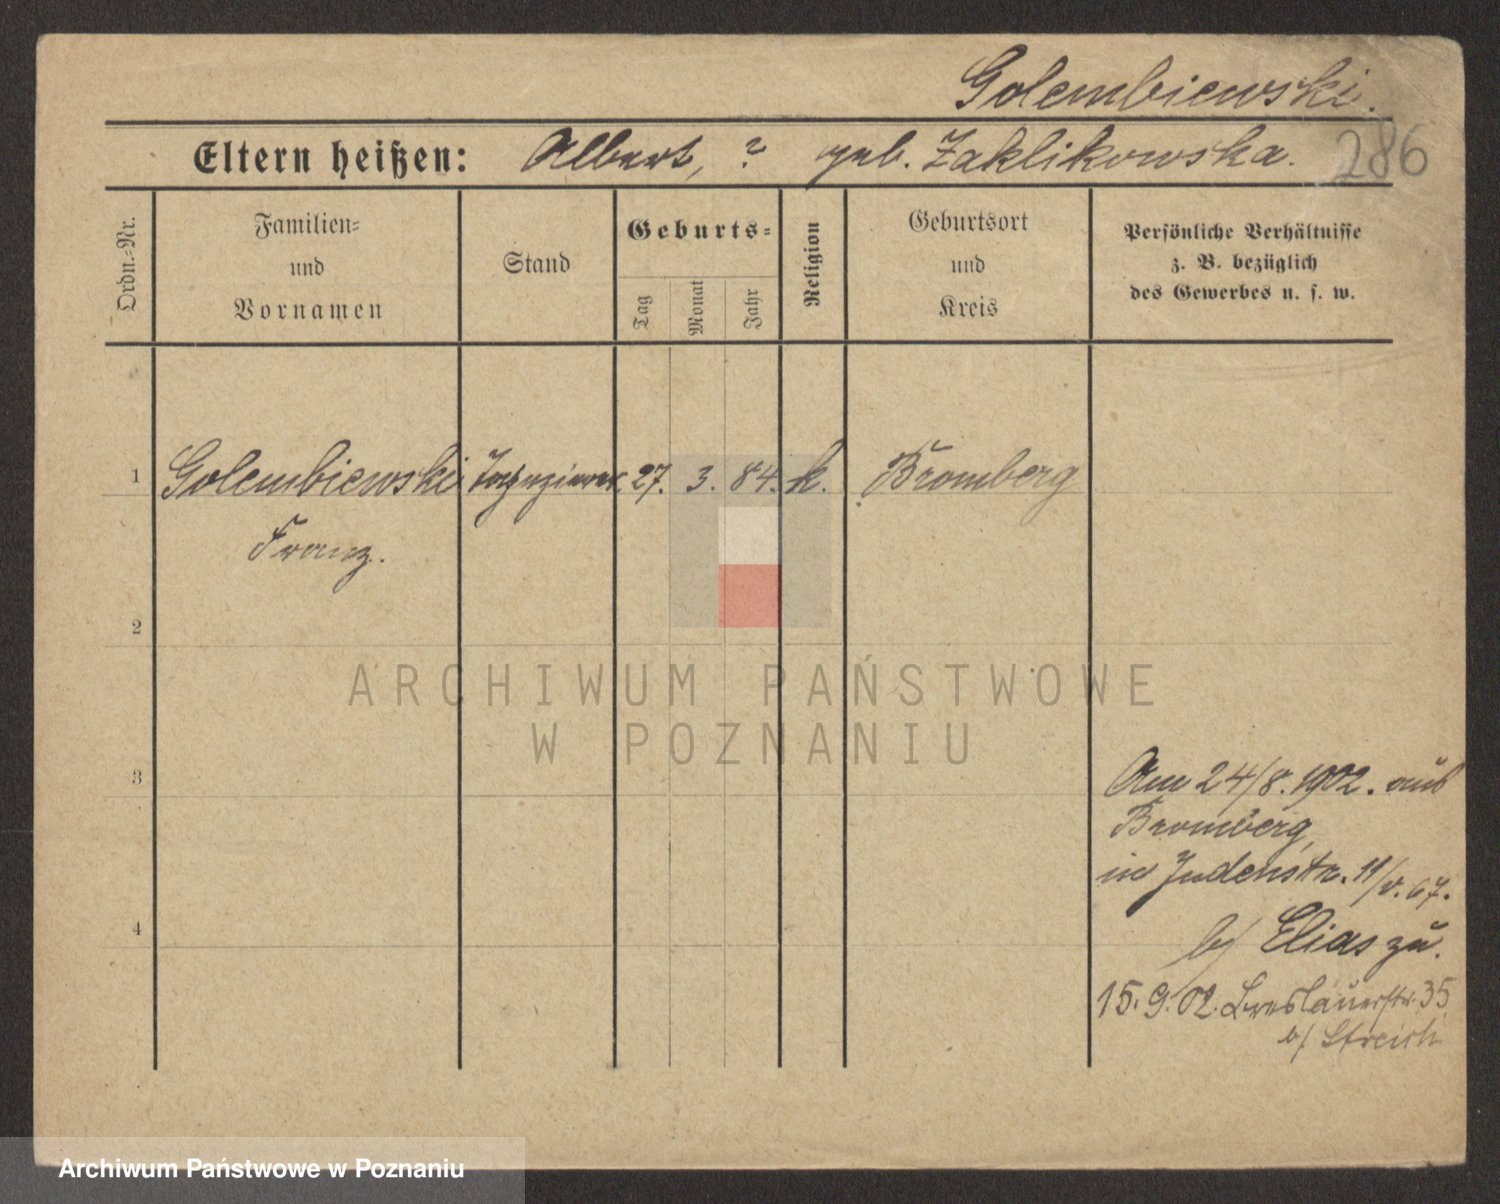 Golembiewski.
Eltern heißen: Albert, ? geb. Zaklikowska. 286
Ordn.-Nr.
Familien-
und
Vornamen
Stand
Geburts-
Tag
Monat
Jahr
Religion
Geburtsort
und
Kreis
Persönliche Verhältnisse
z. B. bezüglich
des Gewerbes u. s. w.
1 Golembiewski Tapezierer 27. 3. 84. k. Bromberg
Franz.
2
ARCHIWUM PAŃSTWOWE
W POZNANIU
3
Am 24/8. 1902. aus
Bromberg,
in Judenstr. 11/v. 67.
4
b/ Elias zu.
15. 9. 02. Breslauerstr. 35
b/ Streich
Archiwum Państwowe w Poznaniu